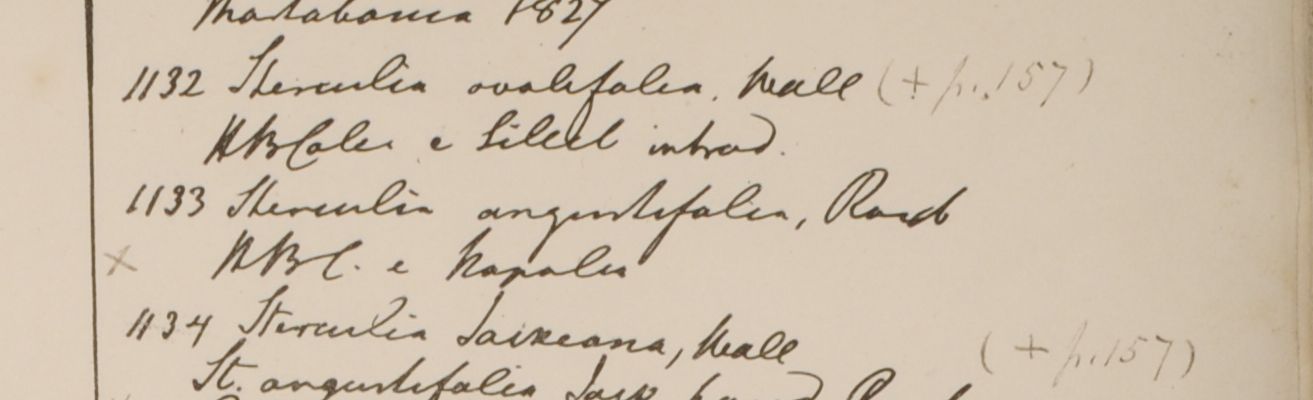 Martabania 1827
1132 Sterculia ovalifolia, Wall (+ p. 157)
HBCalc. e Silhet introd.
1133 Sterculia angustifolia, Roxb
x HBC. e Napalia
1134 Sterculia Jackeana, Wall (+ p. 157)
St. angustifolia Jack